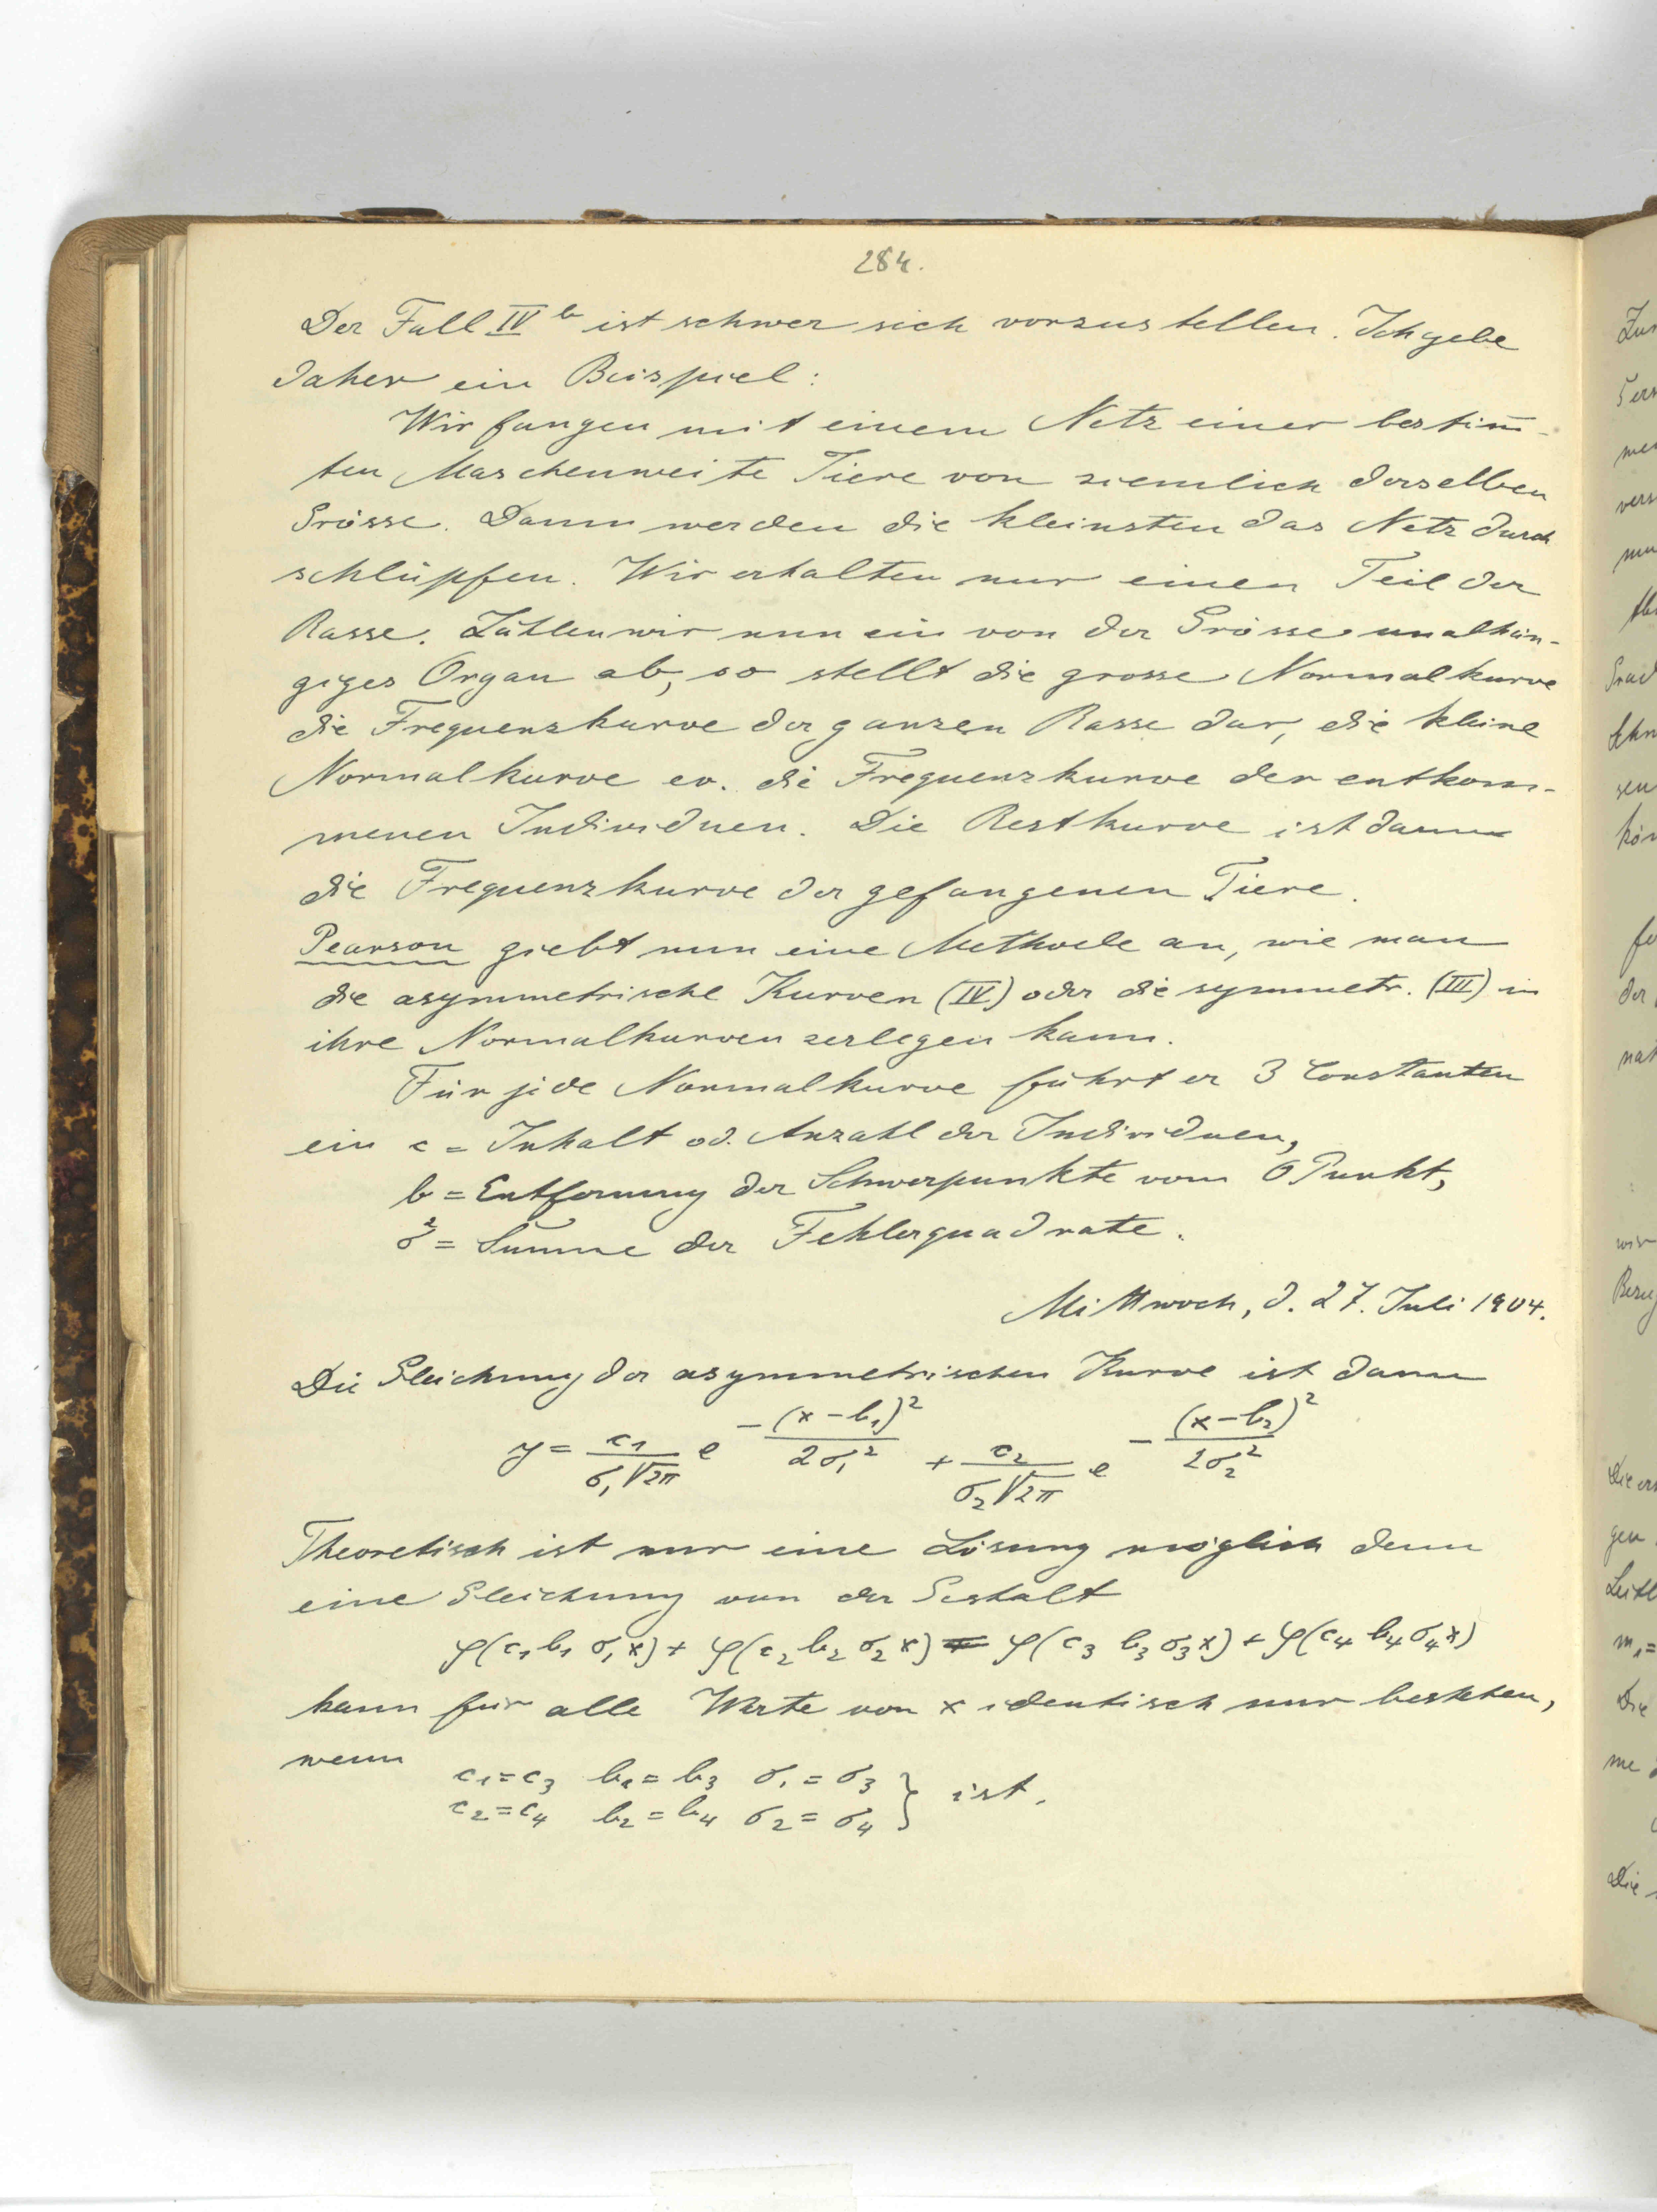 284.
Der Fall IV b ist schwer sich vorzustellen. Ich gebe
daher ein Beispiel:
Wir fangen mit einem Netz einer bestim̄-
ten Maschenweite Tiere von ziemlich derselben
Grösse. Dann werden die kleinsten das Netz durch
schlüpfen. Wir erhalten nur einen Teil der
Rasse. Zählen wir nun ein von der Grösse unabhän-
giges Organ ab, so stellt die grosse Normalkurve
die Frequenzkurve der ganzen Rasse dar, die kleine
Normalkurve ev. die Frequenzkurve der entkom-
menen Individuen. Die Restkurve ist dann
die Frequenzkurve der gefangenen Tiere.
Pearson giebt nun eine Methode an, wie man
die asymmetrische Kurven (IV) oder die symmetr. (III) in
ihre Normalkurven zerlegen kann.
Für jede Normalkurve führt er 3 Constanten
ein c = Inhalt od. Anzahl der Individuen,
b = Entfernung der Schwerpunkte vom 0 Punkt,
σ² = Summe der Fehlerquadrate.
Mittwoch, d. 27. Juli 1904.
Die Gleichung der asymmetrischen Kurve ist dann
y = c₁/(σ₁√2π) e^(-(x-b₁)²/2σ₁²) + c₂/(σ₂√2π) e^(-(x-b₂)²/2σ₂²)
Theoretisch ist nur eine Lösung möglich denn
eine Gleichung von der Gestalt
φ(c₁ b₁ σ₁ x) + φ(c₂ b₂ σ₂ x) = φ(c₃ b₃ σ₃ x) + φ(c₄ b₄ σ₄ x)
kann für alle Werte von x identisch nur bestehen,
wenn c₁=c₃ b₁=b₃ σ₁=σ₃
c₂=c₄ b₂=b₄ σ₂=σ₄ } ist.